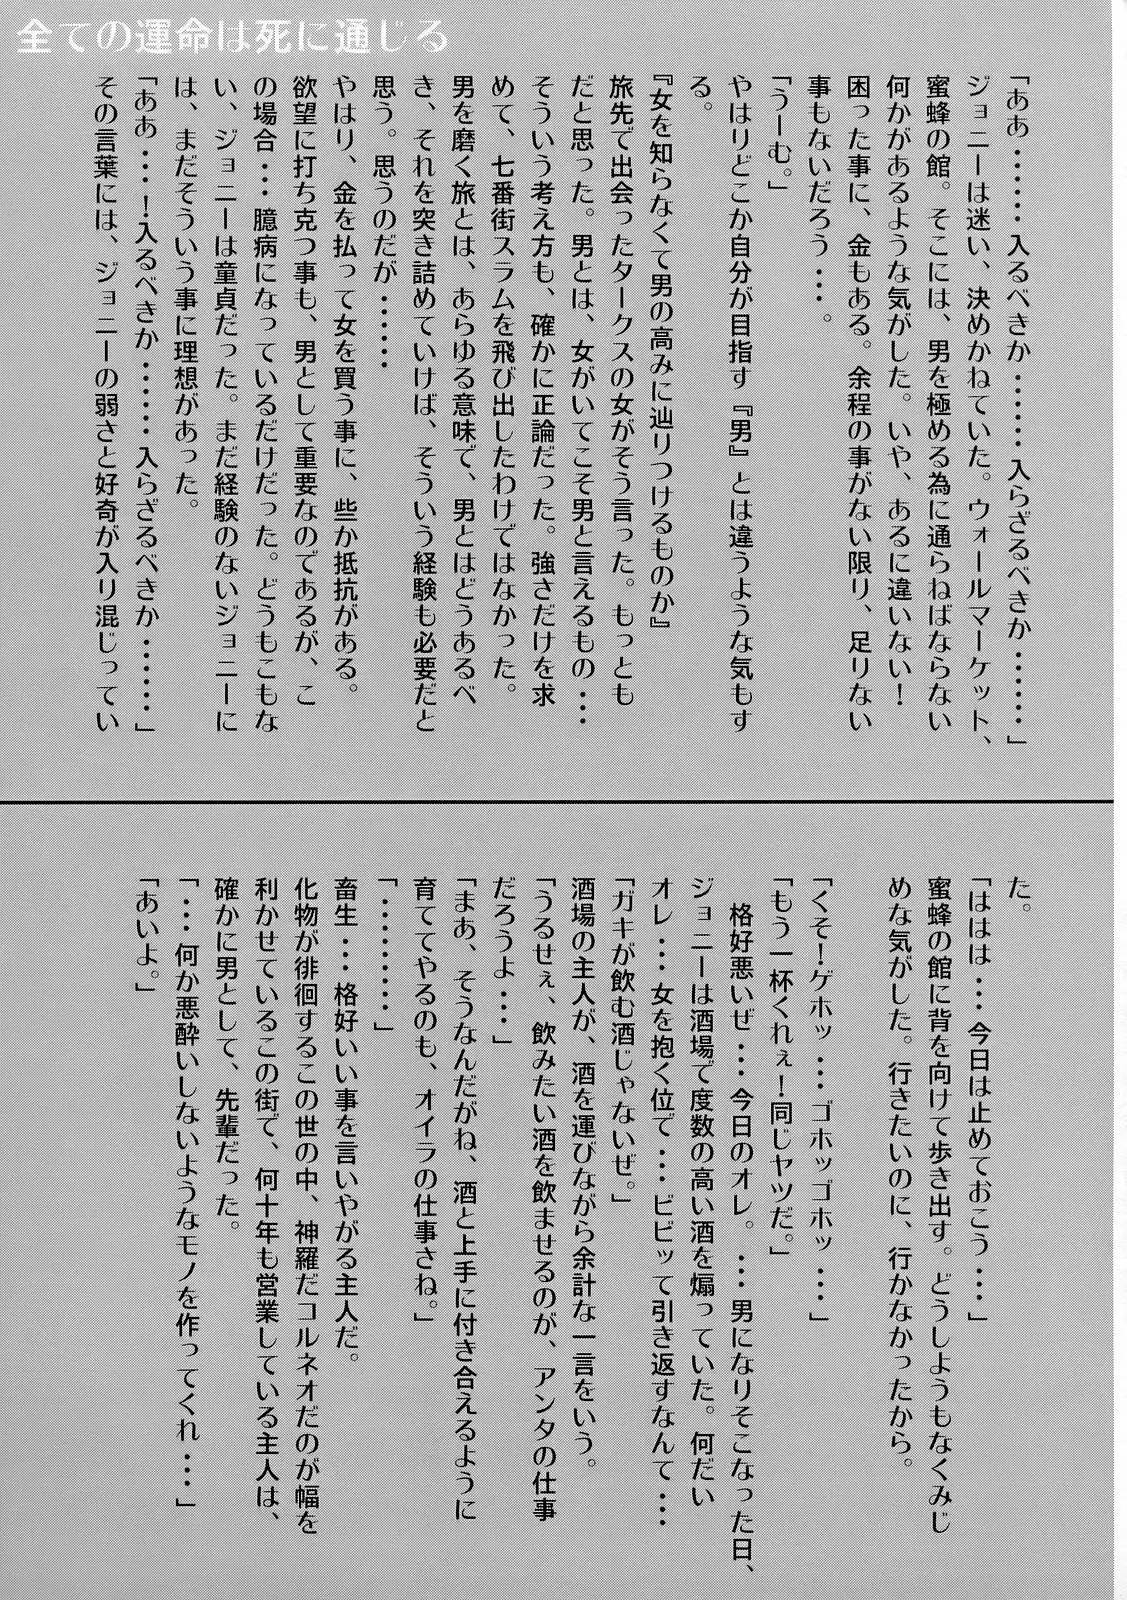 全ての運命は死に通じる
「ああ・・・・・入るべきか・・・・・・入らざるべきか・・・・・・」
ジョニーは迷い、決めかねていた。ウォールマーケット、
蜜蜂の館。そこには、男を極める為に通らねばならない
何かがあるような気がした。いや、あるに違いない！
困った事に、金もある。余程の事がない限り、足りない
事もないだろう・・・。
「うーむ。」
やはりどこか自分が目指す『男』とは違うような気もす
る。
『女を知らなくて男の高みに辿りつけるものか』
旅先で出会ったタークスの女がそう言った。もっとも
だと思った。男とは、女がいてこそ男と言えるもの・・・
そういう考え方も、確かに正論だった。強さだけを求
めて、七番街スラムを飛び出したわけではなかった。
男を磨く旅とは、あらゆる意味で、男とはどうあるべ
き、それを突き詰めていけば、そういう経験も必要だと
思う。思うのだが・・・・・・
やはり、金を払って女を買う事に、些か抵抗がある。
欲望に打ち克つ事も、男として重要なのであるが、こ
の場合・・・臆病になっているだけだった。どうもこもな
い、ジョニーは童貞だった。まだ経験のないジョニーに
は、まだそういう事に理想があった。
「ああ・・・！入るべきか・・・・・入らざるべきか・・・・・・」
その言葉には、ジョニーの弱さと好奇が入り混じってい
た。
「ははは・・・今日は止めておこう・・・」
蜜蜂の館に背を向けて歩き出す。どうしようもなくみじ
めな気がした。行きたいのに、行かなかったから。
「くそ！ゲホッ・・・ゴホッゴホッ・・・」
「もう一杯くれぇ！同じヤツだ。」
格好悪いぜ・・・今日のオレ。・・・男になりそこなった日、
ジョニーは酒場で度数の高い酒を煽っていた。何だい
オレ・・・女を抱く位で・・・ビビッて引き返すなんて・・・
「ガキが飲む酒じゃないぜ。」
酒場の主人が、酒を運びながら余計な一言をいう。
「うるせぇ、飲みたい酒を飲ませるのが、アンタの仕事
だろうよ・・・」
「まあ、そうなんだがね、酒と上手に付き合えるように
育ててやるのも、オイラの仕事さね。」
「・・・・・・・・・」
畜生・・・格好いい事を言いやがる主人だ。
化物が徘徊するこの世の中、神羅だコルネオだのが幅を
利かせているこの街で、何十年も営業している主人は、
確かに男として、先輩だった。
「・・・何か悪酔いしないようなモノを作ってくれ・・・」
「あいよ。」